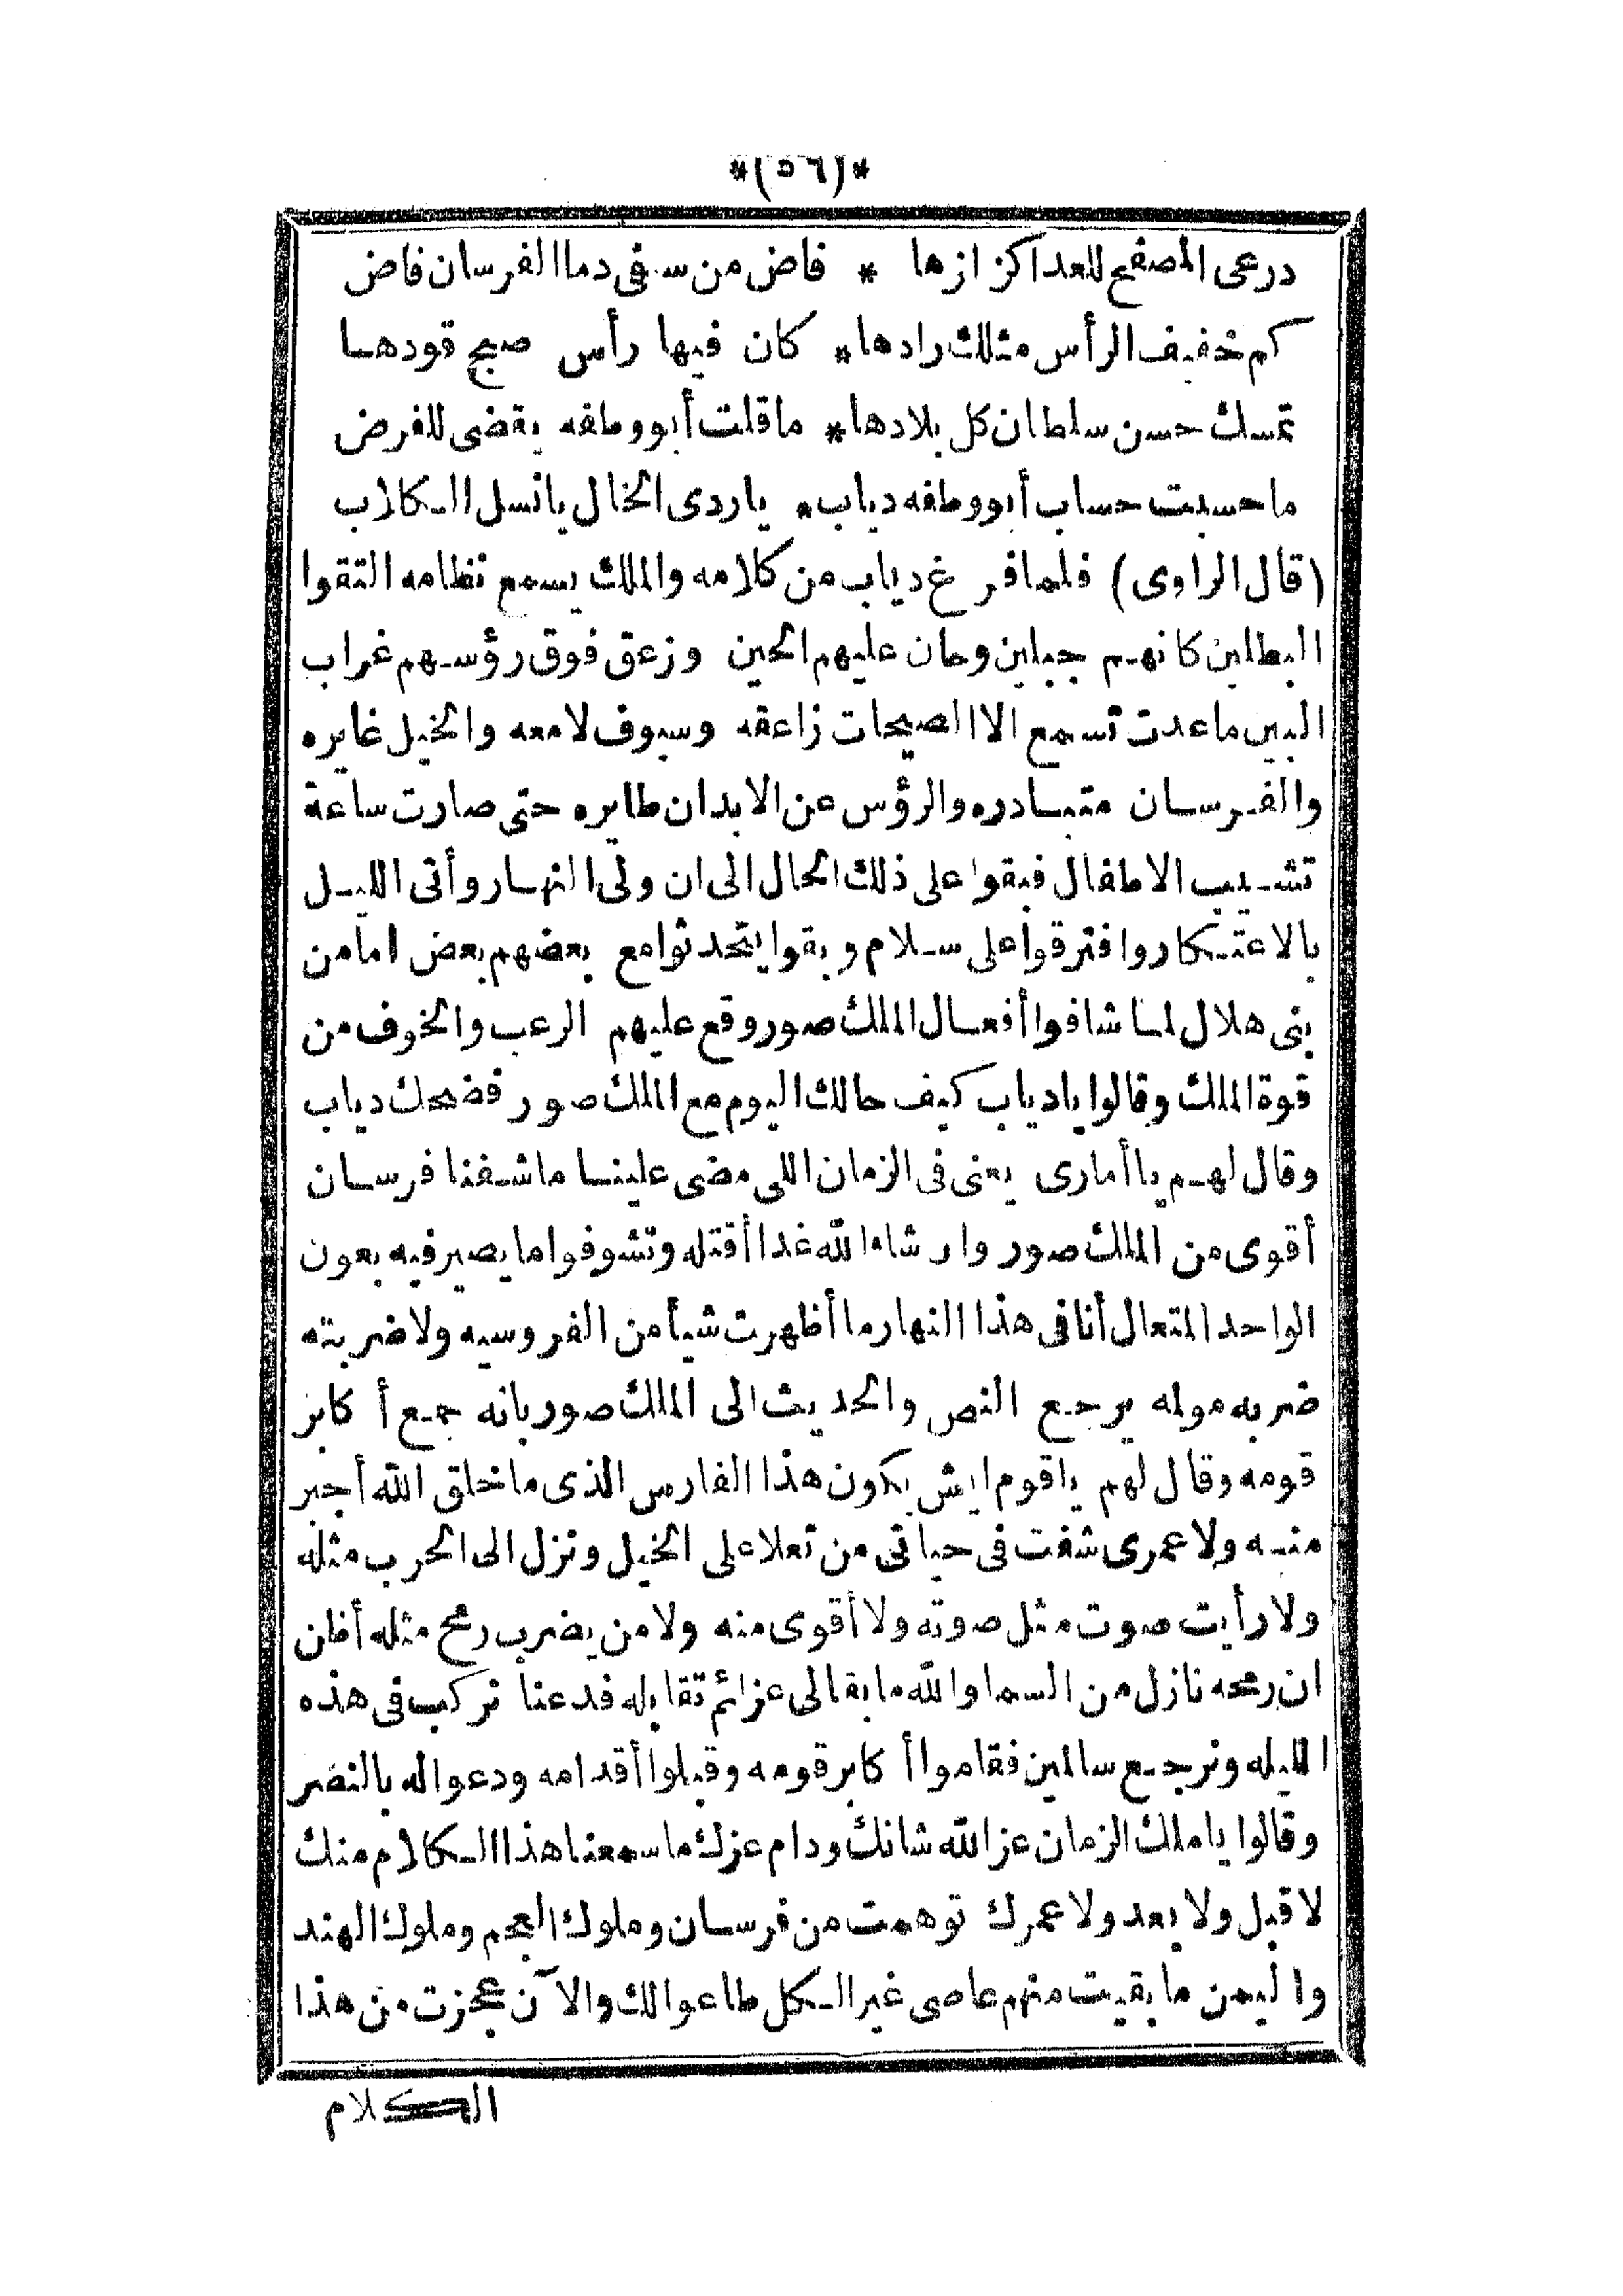 *(٥٦)*
درعى المصفح للعدا كزازها * فاض من سيفى دما الفرسان فاض
كم خفيف الرأس مثلك رادها * كان فيها رأس صبح قودها
تمسك حسن سلطان كل بلادها * ما قلت أبو وطفه يقضى للفرض
ما حسبت حساب أبو وطفه دياب * ياردى الخال يا نسل الكلاب
(قال الراوى) فلما فرغ دياب من كلامه والملك يسمع نظامه التقوا
البطلين كانهم جبلين وحان عليهم الحين وزعق فوق رؤسهم غراب
البين ما عدت تسمع الا الصيحات زاعقه وسيوف لامعه والخيل غايره
والفرسان متبادره والرؤس عن الابدان طايره حتى صارت ساعة
تشيب الاطفال فبقوا على ذلك الحال الى ان ولى النهار وأتى الليل
بالاعتكار وافترقوا على سلام وبقوا يتحدثوا مع بعضهم بعض اما من
بنى هلال لما شافوا أفعال الملك صور وقع عليهم الرعب والخوف من
قوة الملك وقالوا يا دياب كيف حالك اليوم مع الملك صور فضحك دياب
وقال لهم يا أمارى يعنى فى الزمان اللى مضى علينا ما شفنا فرسان
أقوى من الملك صور وان شاء الله غدا أقتله وتشوفوا ما يصير فيه بعون
الواحد المتعال أنا فى هذا النهار ما أظهرت شيأ من الفروسيه ولا ضربته
ضربه موله يرجع النص والحديث الى الملك صور بانه جمع أكابر
قومه وقال لهم ياقوم ايش يكون هذا الفارس الذى ما خلق الله أجبر
منه ولا عمرى شفت فى حياتى من تعلا على الخيل ونزل الى الحرب مثله
ولا رأيت صوت مثل صوته ولا أقوى منه ولا من يضرب رمح مثله أظن
ان رمحه نازل من السما والله ما بقالى عزائم تقابله فدعنا نركب فى هذه
الليله ونرجع سالمين فقاموا أكابر قومه وقبلوا أقدامه ودعوا له بالنصر
وقالوا يا ملك الزمان عز الله شانك ودام عزك ما سمعنا هذا الكلام منك
لا قبل ولا بعد ولا عمرك توهمت من فرسان وملوك العجم وملوك الهند
واليمن ما بقيت منهم عاصى غير الكل طاعوا لك والآن عجزت من هذا
الكلام